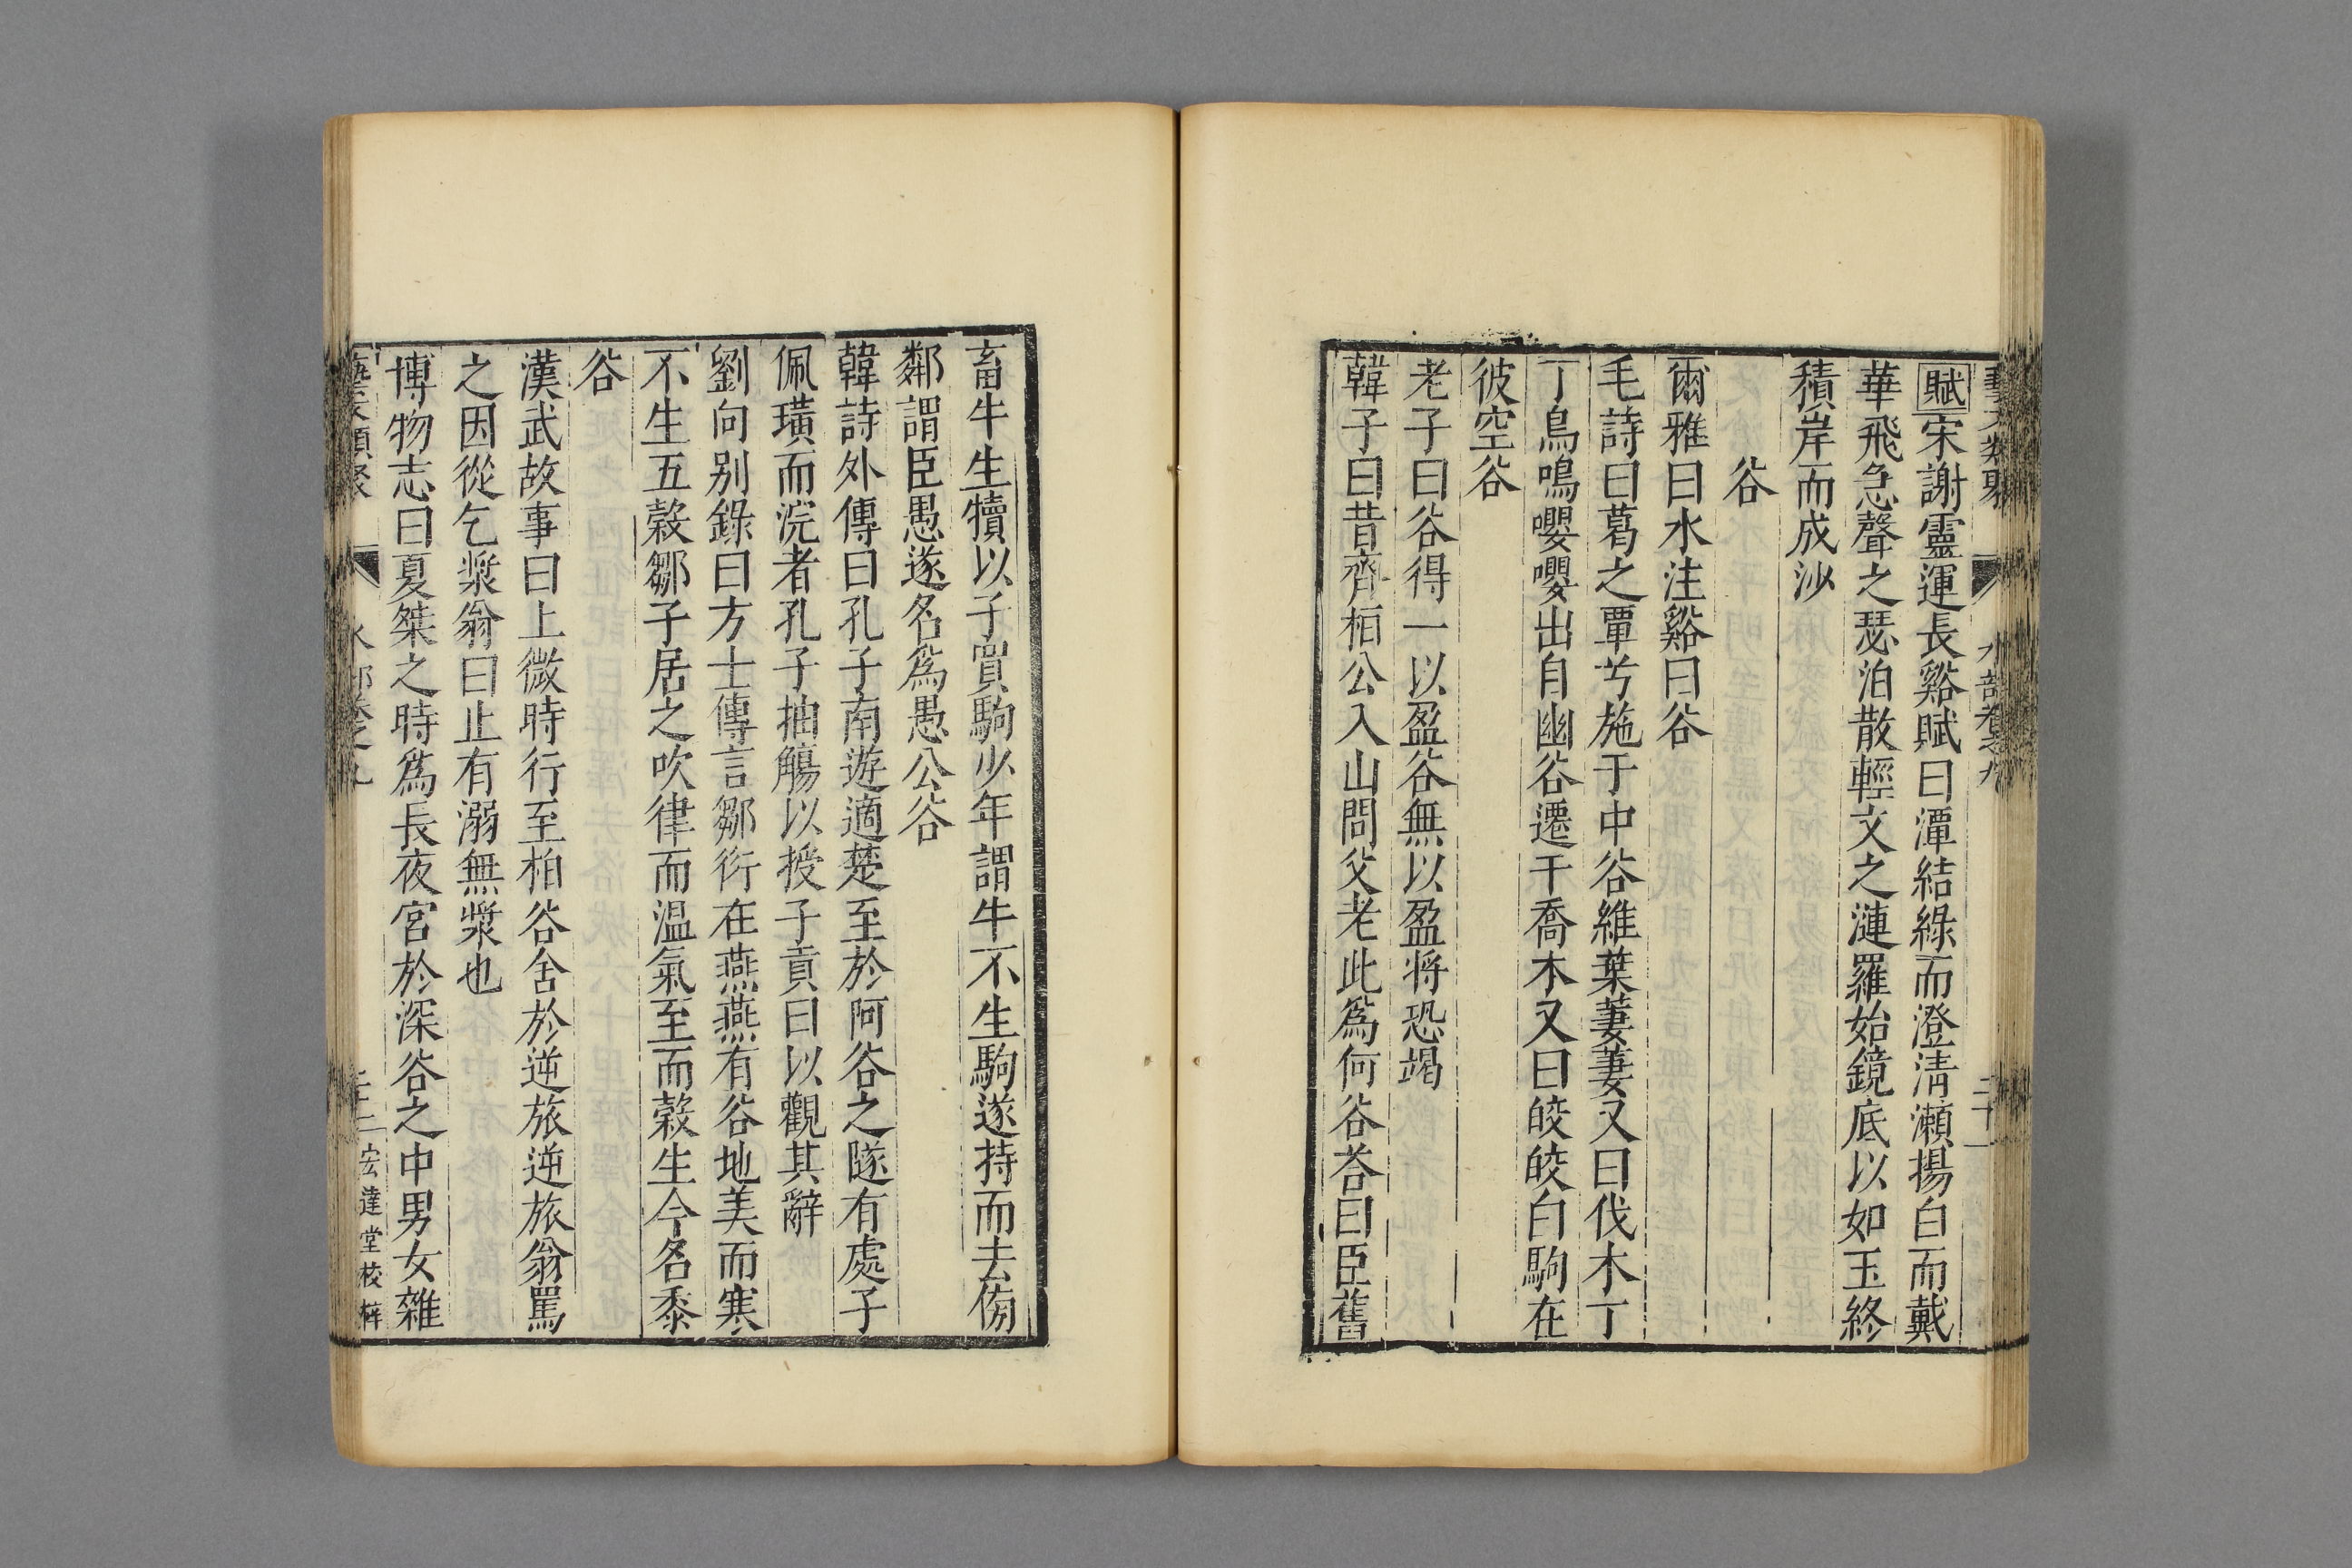 藝文類聚 水部卷之九 二十一
賦宋謝靈運長谿賦曰潭結綠而澄清瀨揚白而戴
華飛急聲之瑟汨散輕文之漣羅始鏡底以如玉終
積岸而成沙
谷
爾雅曰水注谿曰谷
毛詩曰葛之覃兮施于中谷維葉萋萋又曰伐木丁
丁鳥鳴嚶嚶出自幽谷遷于喬木又曰皎皎白駒在
彼空谷
老子曰谷得一以盈谷無以盈將恐竭
韓子曰昔齊桓公入山問父老此爲何谷荅曰臣舊
畜牛生犢以子買駒少年謂牛不生駒遂持而去傍
鄰謂臣愚遂名爲愚公谷
韓詩外傳曰孔子南遊適楚至於阿谷之隧有處子
佩璜而浣者孔子抽觴以授子貢曰以觀其辭
劉向别錄曰方士傳言鄒衍在燕燕有谷地美而寒
不生五穀鄒子居之吹律而温氣至而穀生今名黍
谷
漢武故事曰上微時行至柏谷舍於逆旅逆旅翁罵
之因從乞漿翁曰止有溺無漿也
博物志曰夏桀之時爲長夜宮於深谷之中男女雜
藝文類聚 水部卷之九 二十二 宏達堂校梓